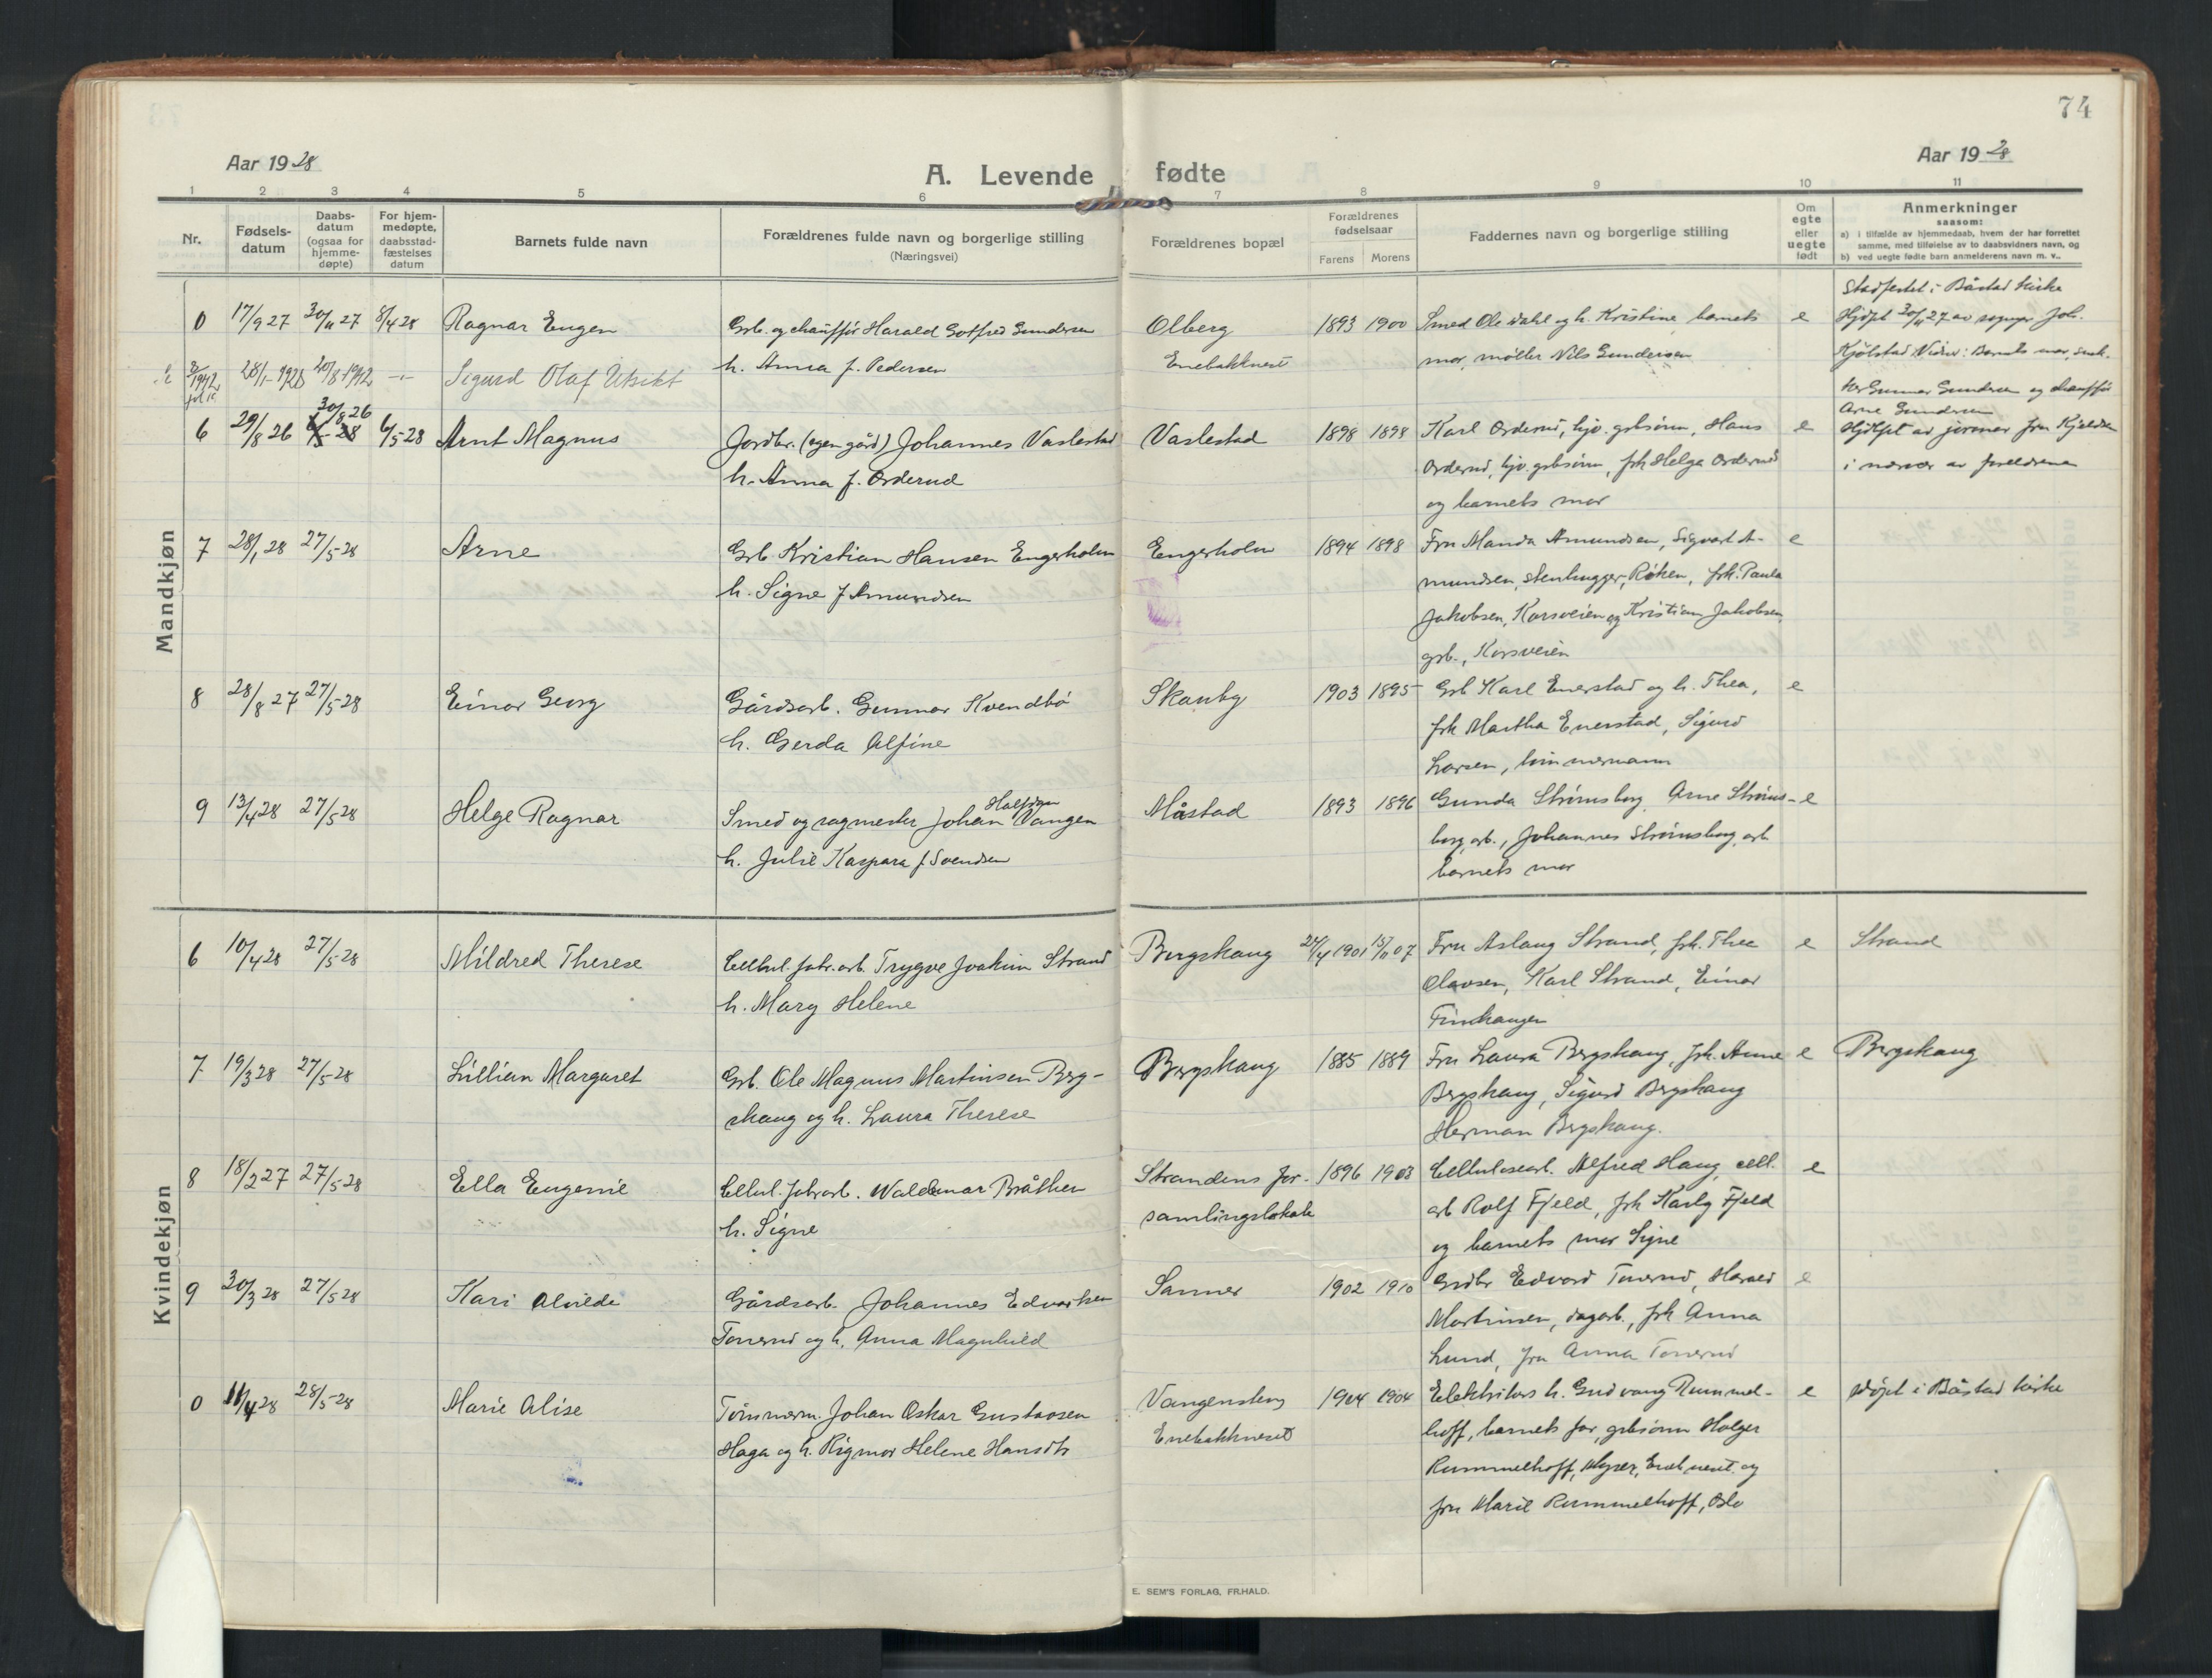 74
Aar 1928
A. Levende fødte
Aar 1928
1 2 3 4 5 6 7 8 9 10 11
Nr.
Fødsels-
datum
Daabs-
datum
(ogsaa for
hjemme-
døpte)
For hjem-
medøpte,
daabsstad-
fæstelses
datum
Barnets fulde navn
Forældrenes fulde navn og borgerlige stilling
(Næringsvei)
Forældrenes bopæl
Forældrenes
fødselsaar
Farens Morens
Faddernes navn og borgerlige stilling
Om
egte
eller
uegte
født
Anmerkninger
saasom:
a) i tilfælde av hjemmedaab, hvem der har forrettet
samme, med tilføielse av to daabsvidners navn, og
b) ved uegte fødte barn anmelderens navn m. v..
Mandkjøn
0 17/9 27 30/11 27 8/4 28 Ragnar Eugen
Grb. og chauffør Harald Gotfred Gundersen
h. Anna f. Pedersen
Olberg
Enebakkneset
1893 1900
Smed Ole Dahl og h. Kristine barnets
mor, møller Nils Gundersen
e
Stadfestet i Båstad kirke
Hjdøpt 30/11 27 av sogнepr Joh.
Kjölstad. Vidner: Barnets mor, snek-
ker Gunnar Gundersen og chauffør
Arne Gundersen
28/1 1928 20/8 1942 Sigurd Olaf Utsikt
6 29/8 26 30/8 26 6/5 28 Arnt Magnus
Jordbr. (egen gård) Johannes Vaslestad
h. Anna f. Orderud
Vaslestad
1898 1898
Karl Orderud, hjv. grbsønn, Hans
Orderud, hjv. grbsønn, frk Helga Orderud
og barnets mor
e
Hjdøpt av jormor fru Kjeldsen
i nærvær av foreldrene
7 28/1 28 27/5 28 Arne
Grb. Kristian Hansen Engerholm
h. Signe f Amundsen
Engerholm
1894 1898
Fru Manda Amundsen, Sigvart A-
mundsen, stenhugger, Röken, frk. Paula
Jakobsen, Korsveien og Kristian Jakobsen,
grb., Korsveien
e
8 28/8 27 27/5 28 Einar Georg
Gårdsarb. Gunnar Kvendbö
h. Gerda Alfine
Skauby
1903 1895
Grb Karl Enerstad og h. Thea,
frk Martha Enerstad, Sigurd
Larsen, tömmermann
e
9 13/4 28 27/5 28 Helge Ragnar
Smed og sagmester Johan Halfdan Vangen
h. Julie Kaspara f. Svendsen
Måstad
1893 1896
Gunda Strömsborg, Arne Ströms-
borg, arb., Johannes Strömsborg, arb
barnets mor
e
Kvindekjøn
6 10/4 28 27/5 28 Mildred Therese
Cellul. fabr. arb. Trygve Joakim Strand
h. Mary Helene
Bergskaug
24/4 1901 15/11 07
Fru Aslaug Strand, frk. Thea
Olavsen, Karl Strand, Einar
Finnhaugen
e
Strand
7 19/3 28 27/5 28 Lillian Margaret
Grb. Ole Magnus Martinsen Berg-
skaug og h. Laura Therese
Bergskaug
1885 1889
Fru Laura Bergskaug, frk. Anne
Bergskaug, Sigurd Bergskaug
Herman Bergskaug.
e
Bergskaug
8 18/2 27 27/5 28 Ella Eugenie
Cellul. fabrarb. Waldemar Bråthen
h. Signe
Strandens for-
samlingslokale
1896 1903
Cellulosearb. Alfred Haug, cell.
arb Rolf Fjeld, frk Karly Fjeld
og barnets mor Signe
e
9 30/3 28 27/5 28 Kari Alvilde
Gårdsarb. Johannes Edvartsen
Tonerud og h. Anna Magnhild
Sanner
1902 1910
Grdbr Edvard Tonerud, Harald
Martinsen, dagarb., frk Anna
Lund, fru Anna Tonerud
e
0 11/4 28 28/5 28 Marie Alise
Tömmerm. Johan Oskar Gustavsen
Haga og h. Rigmor Helene Hansdtr
Vangensten
Enebakkneset
1904 1904
Elektrikers h. Gudvang Rummel-
hoff, barnets far, grbsønn Holger
Rummelhoff, Myrer, Enebneset og
fru Marie Rummelhoff, Oslo
e
Døpt i Båstad kirke
E. SEM'S FORLAG, FR.HALD.